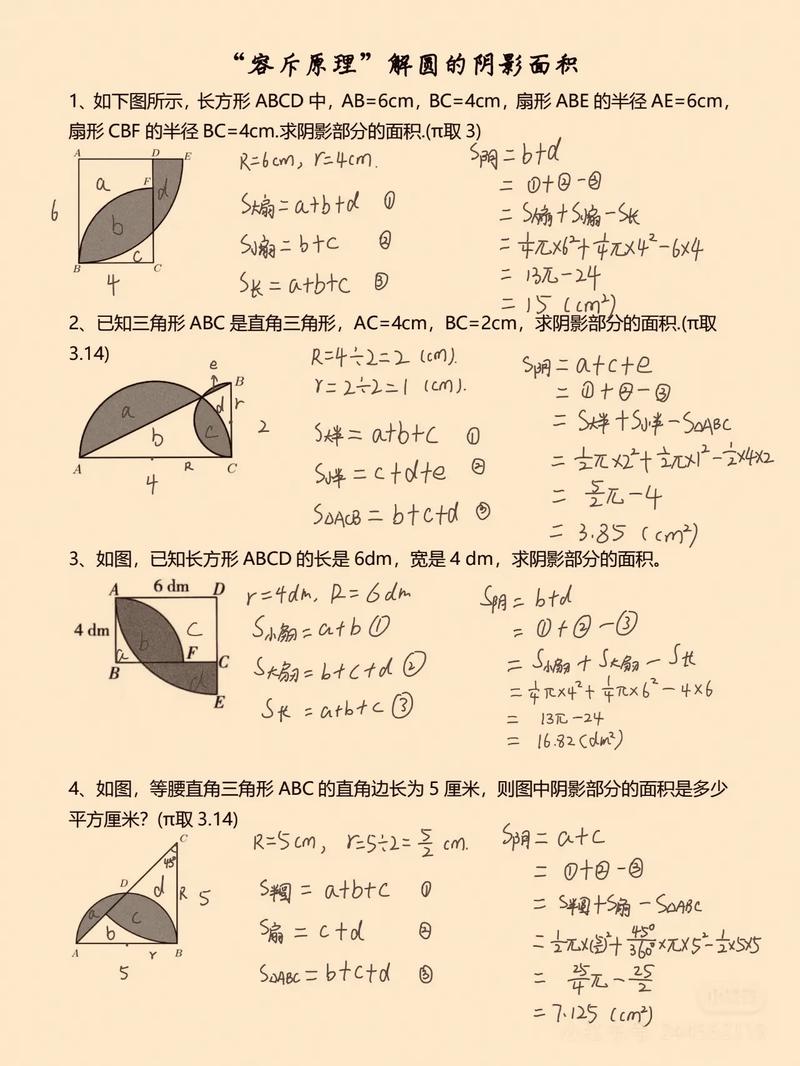 “容斥原理”解圆的阴影面积
1、如下图所示，长方形 ABCD 中，AB=6cm，BC=4cm，扇形 ABE 的半径 AE=6cm，
扇形 CBF 的半径 BC=4cm.求阴影部分的面积.(π取 3)
A D E
a F d
6 b
c
B C
4
R=6cm, r=4cm.
S大扇=a+b+d ①
S小扇=b+c ②
S长=a+b+c ③
S阴=b+d
=①+②-③
=S大扇+S小扇-S长
=¼π×6²+¼π×4²-6×4
=13π-24
=15 (cm²)
2、已知三角形 ABC 是直角三角形，AC=4cm，BC=2cm，求阴影部分的面积.(π取
3.14)
e
B
a d r
b c 2
A R C
4
R=4÷2=2 (cm).
r=2÷2=1 (cm).
S大半=a+b+c ①
S小半=c+d+e ②
S△ACB=b+c+d ③
S阴=a+c+e
=①+②-③
=S大半+S小半-S△ABC
=½π×2²+½π×1²-½×4×2
=5/2π-4
=3.85 (cm²)
3、如图，已知长方形 ABCD 的长是 6dm，宽是 4 dm，求阴影部分的面积。
A 6 dm D
4 dm b c
a F
B C
d
E
r=4dm, R=6dm
S小扇=a+b ①
S大扇=b+c+d ②
S长=a+b+c ③
S阴=b+d
=①+②-③
=S小扇+S大扇-S长
=¼π×4²+¼π×6²-4×6
=13π-24
=16.82(dm²)
4、如图，等腰直角三角形 ABC 的直角边长为 5 厘米，则图中阴影部分的面积是多少
平方厘米？(π取 3.14)
C
45°
D d R 5
a c
b
A r B
5
R=5cm, r=5÷2=5/2 cm.
S半圆=a+b+c ①
S扇=c+d ②
S△ABC=b+c+d ③
S阴=a+c
=①+②-③
=S半圆+S扇-S△ABC
=½π×(5/2)²+45°/360°×π×5²-½×5×5
=25/4π-25/2
=7.125 (cm²)
小红书